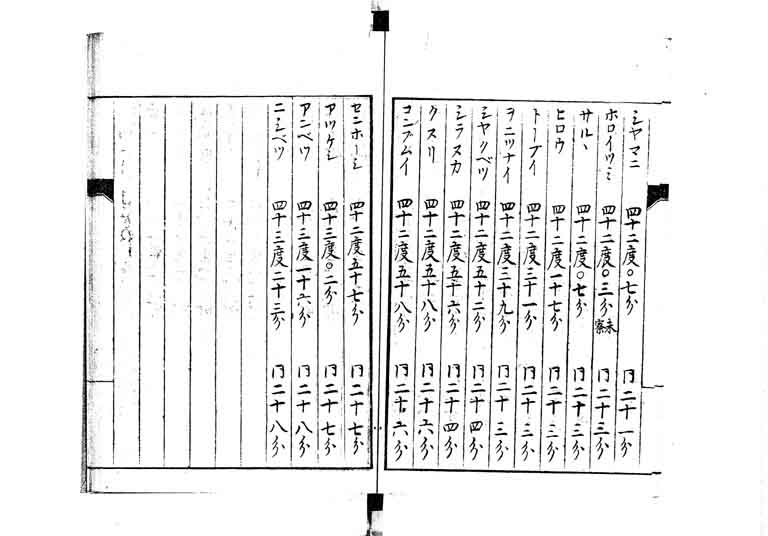 シヤマニ 四十二度〇七分 円二十一分
ホロイツミ 四十二度〇三分未察 円二十三分
サルヽ 四十二度〇七分 円二十三分
ヒロウ 四十二度一十七分 円二十三分
トーブイ 四十二度三十一分 円二十三分
ヲニツナイ 四十二度三十九分 円二十三分
シヤクベツ 四十二度五十二分 円二十四分
シラヌカ 四十二度五十六分 円二十四分
クスリ 四十二度五十八分 円二十六分
コンブムイ 四十二度五十八分 円二十六分
センホーシ 四十二度五十七分 円二十七分
アツケシ 四十三度〇二分 円二十七分
アンベツ 四十三度一十六分 円二十八分
ニシベツ 四十三度二十三分 円二十八分